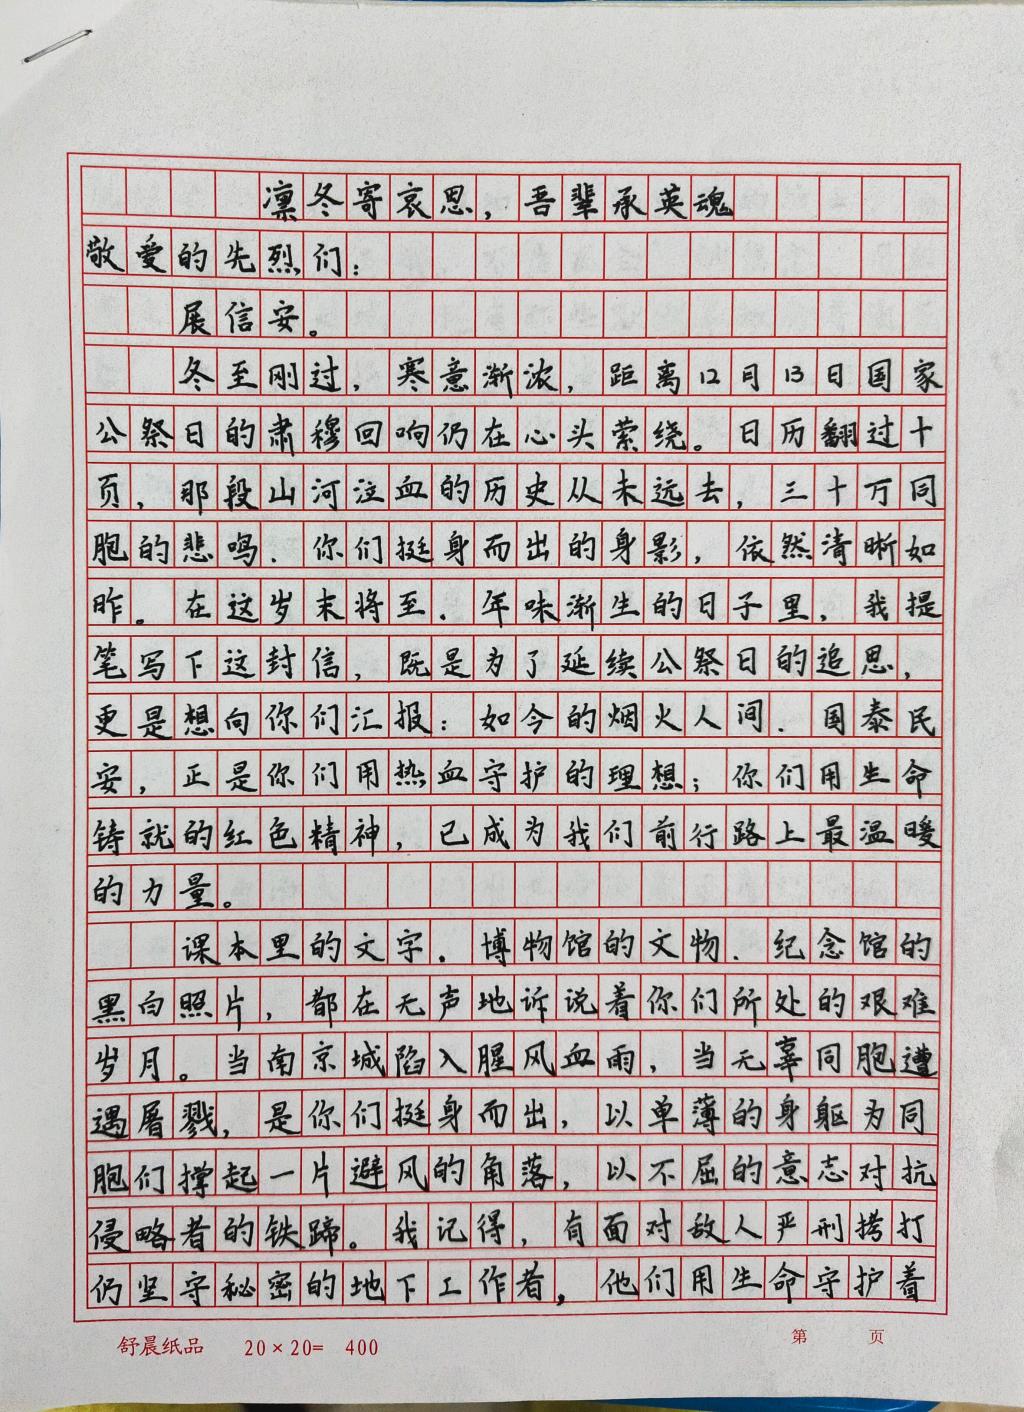 凛冬寄哀思，吾辈承英魂
敬爱的先烈们：
展信安。
冬至刚过，寒意渐浓，距离12月13日国家
公祭日的肃穆回响仍在心头萦绕。日历翻过十
页，那段山河泣血的历史从未远去，三十万同
胞的悲鸣、你们挺身而出的身影，依然清晰如
昨。在这岁末将至、年味渐生的日子里，我提
笔写下这封信，既是为了延续公祭日的追思，
更是想向你们汇报：如今的烟火人间、国泰民
安，正是你们用热血守护的理想；你们用生命
铸就的红色精神，已成为我们前行路上最温暖
的力量。
课本里的文字、博物馆的文物、纪念馆的
黑白照片，都在无声地诉说着你们所处的艰难
岁月。当南京城陷入腥风血雨，当无辜同胞遭
遇屠戮，是你们挺身而出，以单薄的身躯为同
胞们撑起一片避风的角落，以不屈的意志对抗
侵略者的铁蹄。我记得，有面对敌人严刑拷打
仍坚守秘密的地下工作者，他们用生命守护着
舒晨纸品 20×20= 400 第 页